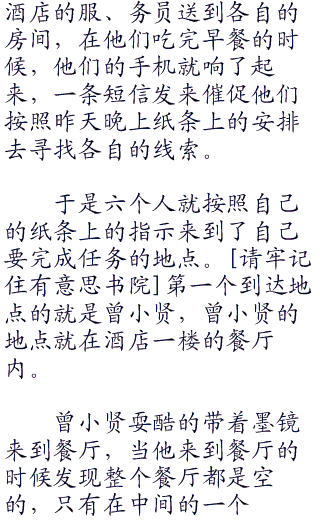 酒店的服、务员送到各自的
房间，在他们吃完早餐的时
候，他们的手机就响了起
来，一条短信发来催促他们
按照昨天晚上纸条上的安排
去寻找各自的线索。
于是六个人就按照自己
的纸条上的指示来到了自己
要完成任务的地点。[请牢记
住有意思书院]第一个到达地
点的就是曾小贤，曾小贤的
地点就在酒店一楼的餐厅
内。
曾小贤耍酷的带着墨镜
来到餐厅，当他来到餐厅的
时候发现整个餐厅都是空
的，只有在中间的一个